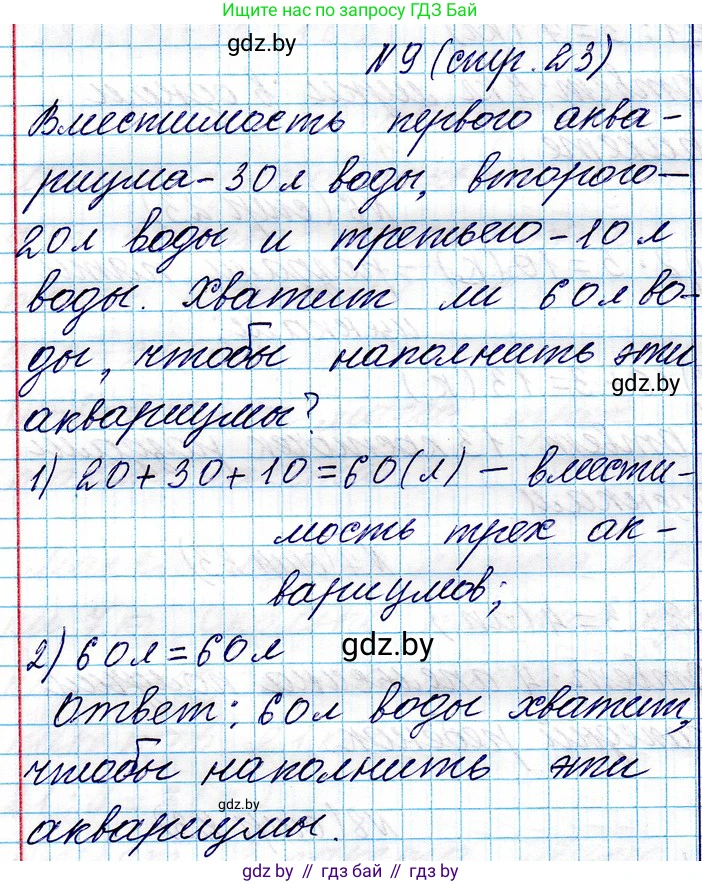 Ищите нас по запросу ГДЗ Бай
gdz.by
№9 (стр. 23)
Вместимость первого аква-
риума - 30л воды, второго -
20л воды и третьего - 10л
воды. Хватит ли 60л во-
ды, чтобы наполнить эти
gdz.by
аквариумы?
1) 20 + 30 + 10 = 60 (л) - вмести-
мость трех ак-
вариумов;
2) 60л = 60л
gdz.by
Ответ: 60л воды хватит,
чтобы наполнить эти
gdz.by
аквариумы.
gdz.by // гдз бай // гдз by